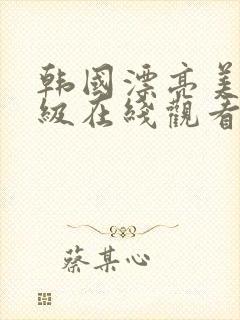 韩國漂亮美
級在綫觀看
蔡某心